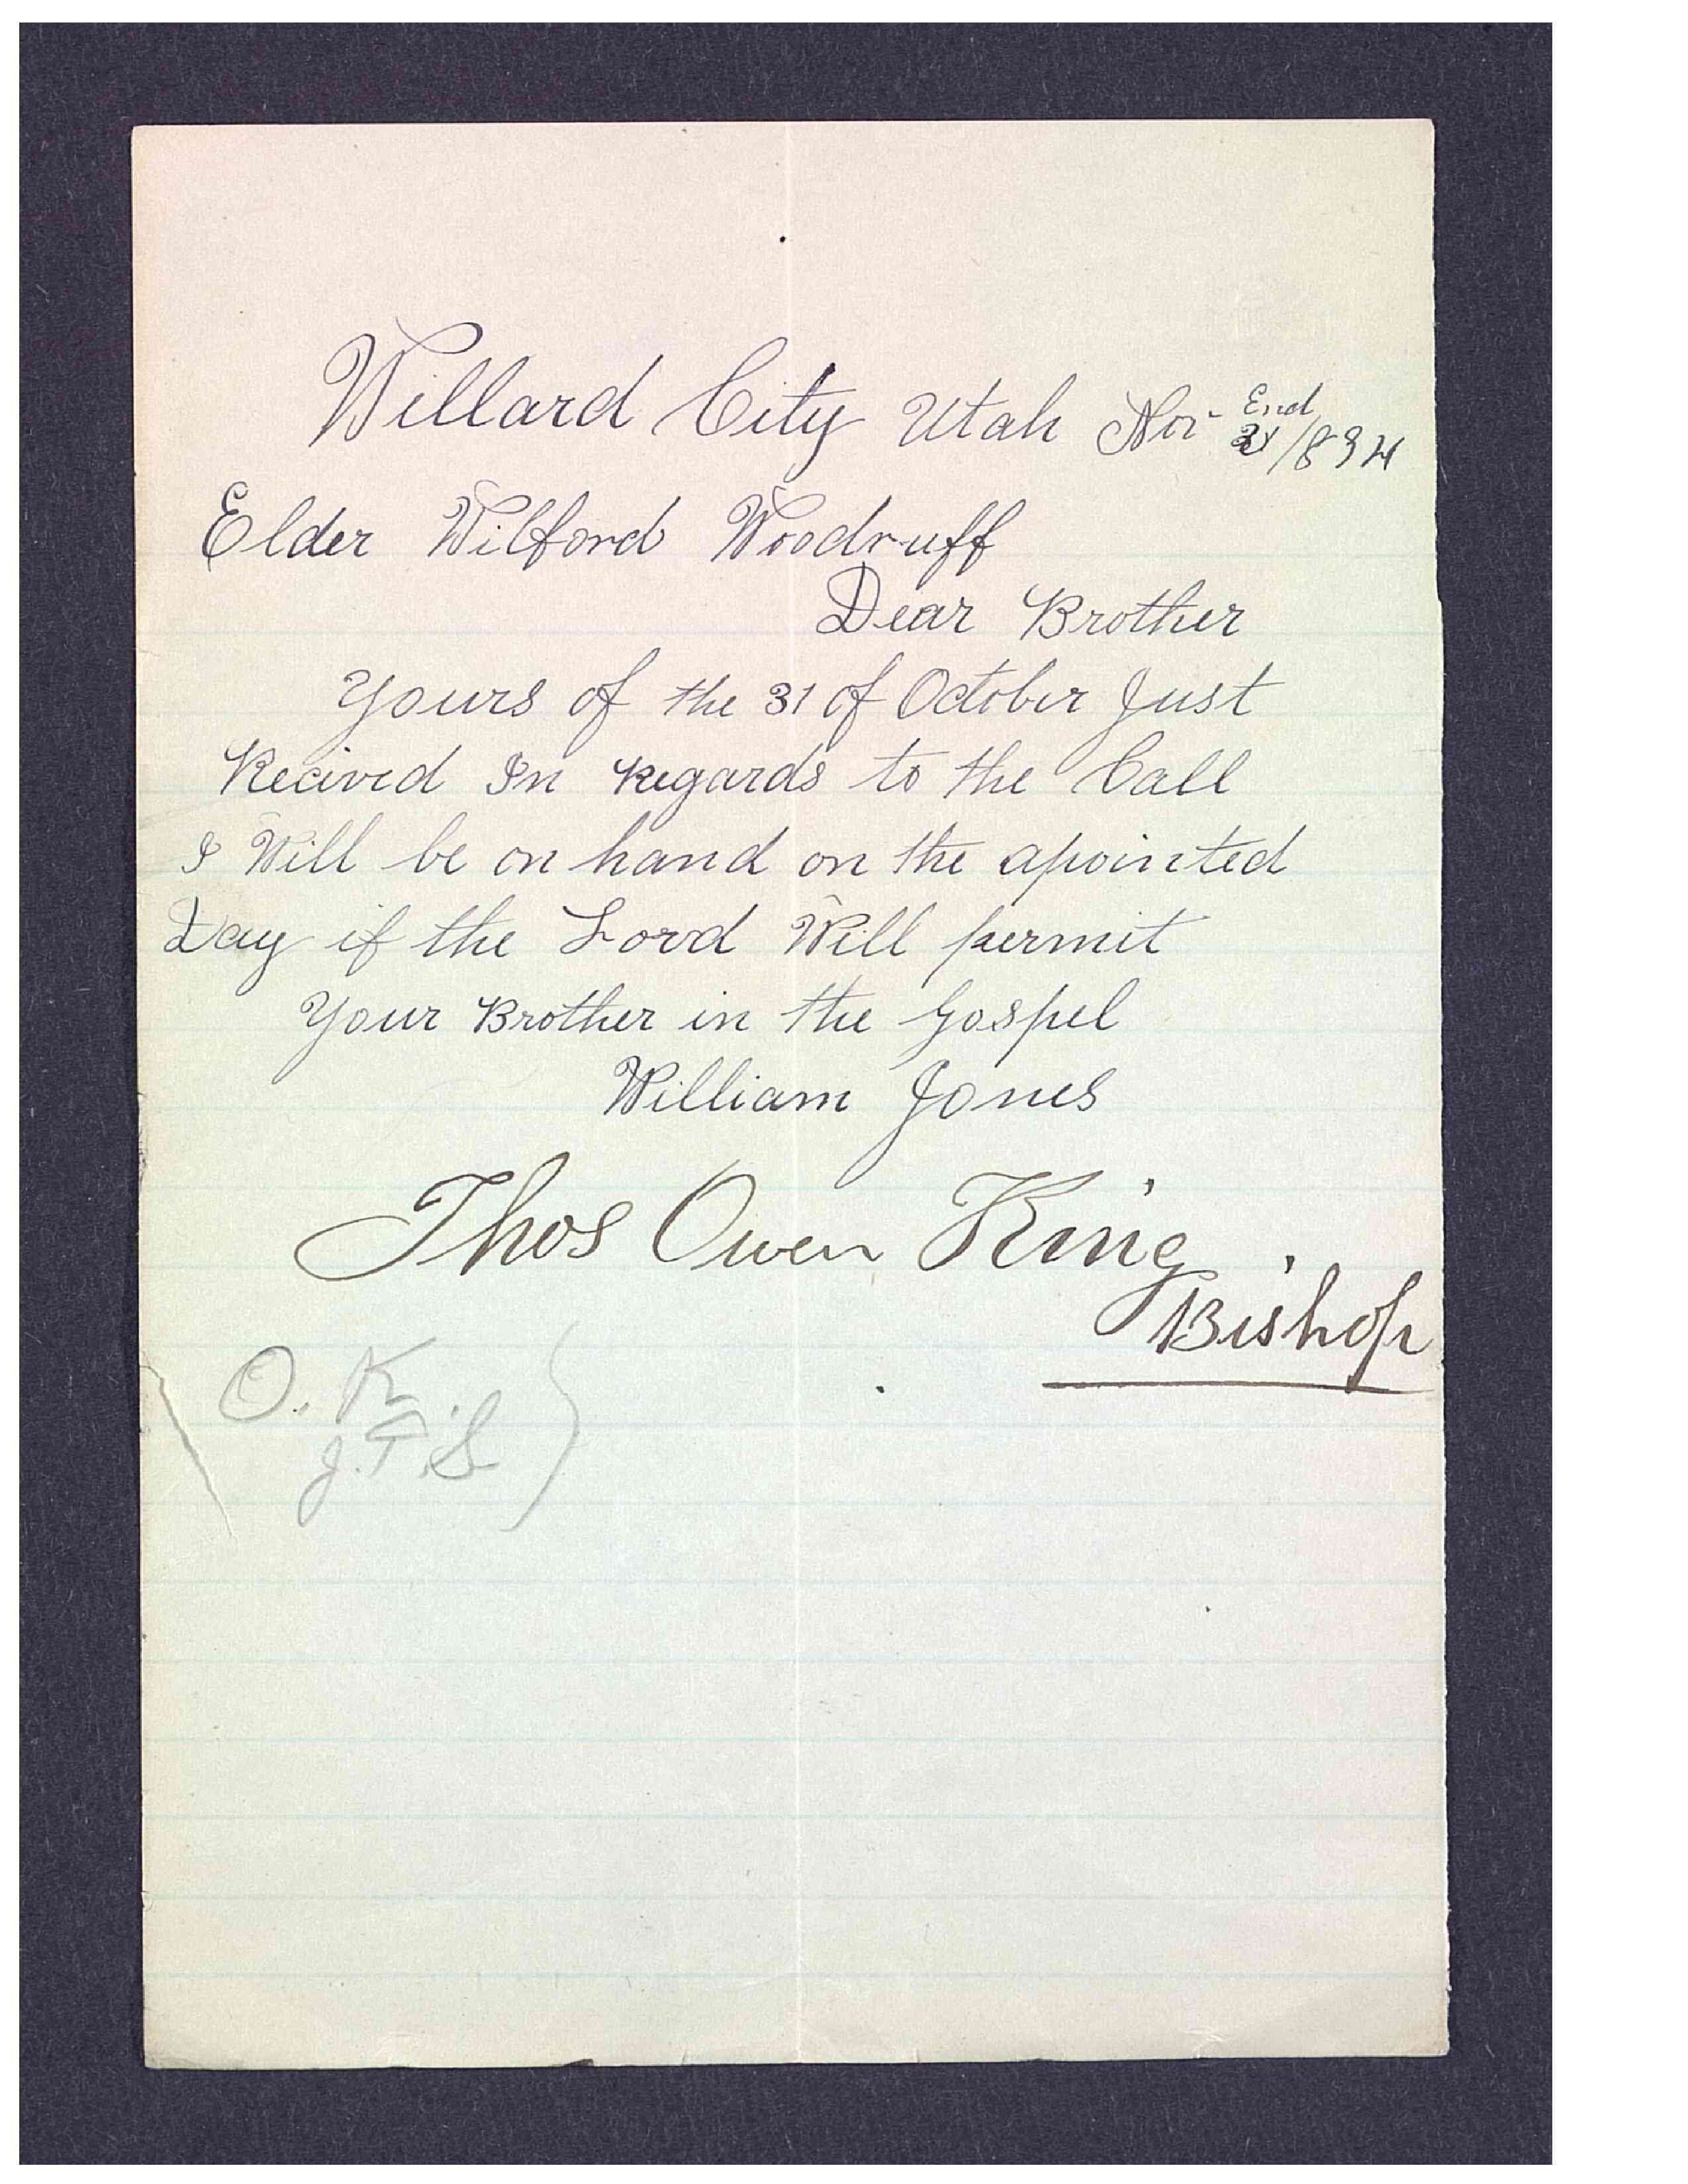 Willard City Utah Nov 2nd /894
Elder Wilford Woodruff
Dear Brother
Yours of the 31 of October Just
Recived In Regards to the Call
I Will be on hand on the apointed
Day if the Lord Will permit
Your Brother in the Gospel
William Jones
Thos Owen King
Bishop
O. K.
J. F. S.